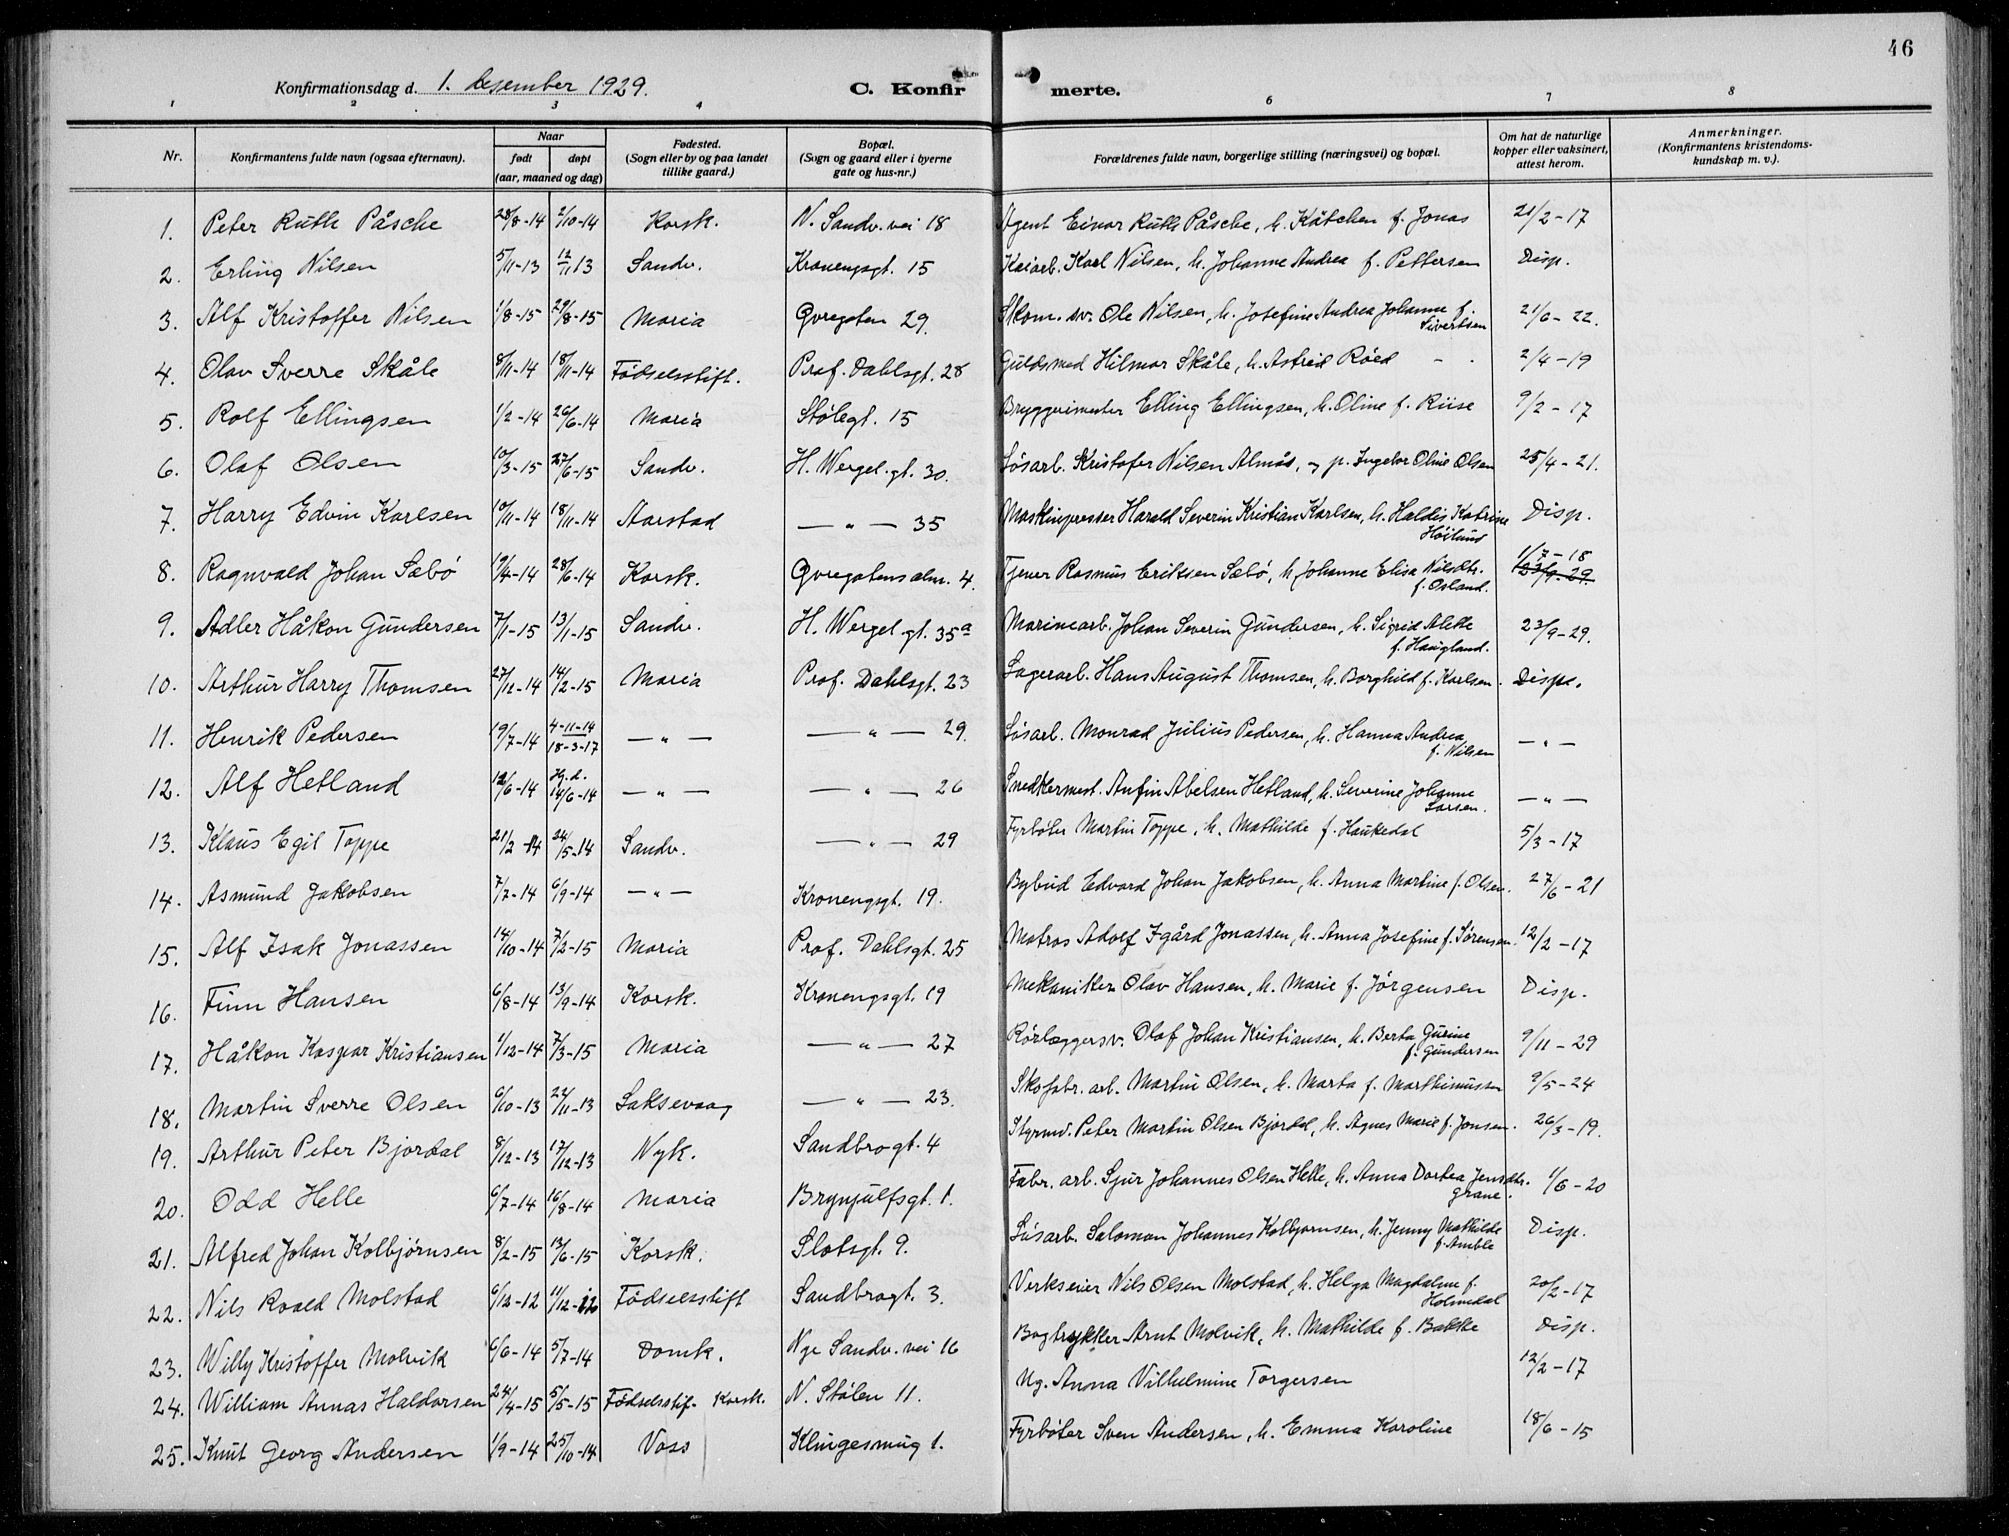 46
Konfirmationsdag d. 1. desember 1929. C. Konfirmerte.
1 2 3 4 6 7 8
Nr. Konfirmantens fulde navn (ogsaa efternavn). Naar født døpt (aar, maaned og dag) Fødested. (Sogn eller by og paa landet tillike gaard.) Bopæl. (Sogn og gaard eller i byerne gate og hus-nr.) Forældrenes fulde navn, borgerlige stilling (næringsvei) og bopæl. Om hat de naturlige kopper eller vaksinert, attest herom. Anmerkninger. (Konfirmantens kristendomskundskap m. v.).
1. Peter Ruth Påsche 28/8-14 2/10-14 Korsk. N. Sandv. vei 18 Agent Einar Ruth Påsche, h. Kätchen f. Jonas 21/2-17
2. Erling Nilsen 5/11-13 12/11 13 Sandv. Kronengsgt. 15 Kaiarb. Karl Nilsen, h. Johanne Andrea f. Pettersen Disp.
3. Alf Kristoffer Nilsen 1/8-15 29/8-15 Maria Øvregaten 29. Skom. sv. Ole Nilsen, h. Josefine Andrea Johanne f. Sivertsen 21/6-22.
4. Olav Sverre Skåle 8/11-14 18/11-14 Födselsstift. Prof. Dahlsgt. 28 Guldsmed Hilmar Skåle, h. Astrid Röed - - 2/4-19
5. Rolf Ellingsen 1/2-14 26/6-14 Maria Stølegt. 15 Bryggerimester Elling Ellingsen, h. Oline f. Riise 9/2-17
6. Olaf Olsen 10/3-15 27/6-15 Sandv. H. Wergel. gt. 30. Løsarb. Kristofer Nilsen Almås, p. Ingebor Oline Olsen 25/4-21.
7. Harry Edvin Karlsen 10/11-14 18/11-14 Aarstad — „ — 35 Maskinpresser Harald Severin Kristian Karlsen, h. Haldis Katrine Höiland Disp.
8. Ragnvald Johan Sæbö 19/4-14 28/6-14 Korsk. Øvregatensalm. 4. Tjener Rasmus Eriksen Sæbö, h. Johanne Elisa Nilsdtr. f. Osland. 1/7-18 23/9-29
9. Adler Håkon Gundersen 7/1-15 13/1-15 Sandv. H. Wergel. gt. 35a Marinearb. Johan Severin Gundersen, h. Sigrid Alette f. Haugland. 23/9-29.
10. Arthur Harry Thomsen 27/12-14 14/2-15 Maria Prof. Dahlsgt. 23 Lagerarb. Hans August Thomsen, h. Borghild f. Karlsen. Disp.
11. Henrik Pedersen 19/7-14 4-11-14 18-3-17 — „ — — „ — 29. Løsarb. Monrad Julius Pedersen, h. Hanna Andrea f. Nilsen — „ —
12. Alf Hetland 12/6-14 Hj.d. 14/6-14 — „ — — „ — 26 Snedkermest. Anfin Abelsen Hetland, h. Severine Johanne Larsen. — „ —
13. Klaus Egil Toppe 21/2-14 24/5-14 Sandv. — „ — 29 Fyrbøter Martin Toppe, h. Mathilde f. Haukedal 5/3-17
14. Asmund Jakobsen 7/7-14 6/9-14 — „ — Kronengsgt. 19. Bybud Edvard Johan Jakobsen, h. Anna Martine f. Olsen. 27/6-21
15. Alf Isak Jonassen 14/10-14 7/2-15 Maria Prof. Dahlsgt. 25 Matros Adolf Igård Jonassen, h. Anna Josefine f. Sörensen. 12/2-17
16. Finn Hansen 6/8-14 13/9-14 Korsk. Kronengsgt. 19 Mekaniker Olav Hansen, h. Marie f. Jörgensen Disp.
17. Håkon Kaspar Kristiansen 1/12-14 7/3-15 Maria — „ — 27 Rörlæggersv. Olaf Johan Kristiansen, h. Berta Gurine f. Gundersen 9/11-29
18. Martin Sverre Olsen 6/10-13 22/11-13 Laksevaag — „ — 23. Skofabr. arb. Martin Olsen, h. Marta f. Marthinussen 9/5-24
19. Arthur Peter Bjordal 8/12-13 17/12-13 Nyk. Sandbrogt. 4 Styrmd. Peter Martin Olsen Bjordal, h. Agnes Marie f. Jonsen. 26/3-19.
20. Odd Helle 6/7-14 16/8-14 Maria Brynjulfsgt. 1. Fabr. arb. Sjur Johannes Olsen Helle, h. Anna Dortea Jensdtr. Grane. 1/6-20
21. Alfred Johan Kolbjörnsen 8/2-15 13/6-15 Korsk. Slotsgt. 9. Løsarb. Salomon Johannes Kolbjørnsen, h. Jenny Mathilde f. Amble Disp.
22. Nils Roald Molstad 6/12-12 11/12-12 Födselsstift Sandbrogt. 3. Verkseier Nils Olsen Molstad, h. Helga Magdalene f. Holmedal 20/2-17
23. Willy Kristoffer Molvik 6/6-14 5/7-14 Domk. Nye Sandv. vei 16 Bogtrykker Arnt Molvik, h. Mathilde f. Bakke Disp.
24. William Annas Haldorsen 24/4-15 5/5-15 Födselsstif- Korsk. N. Stølen 11. Ug. Anna Vilhelmine Torgersen 12/2-17
25. Knut Georg Andersen 1/9-14 25/10-14 Voss Klingesmug 1. Fyrbøter Sven Andersen, h. Emma Karoline 18/6-15